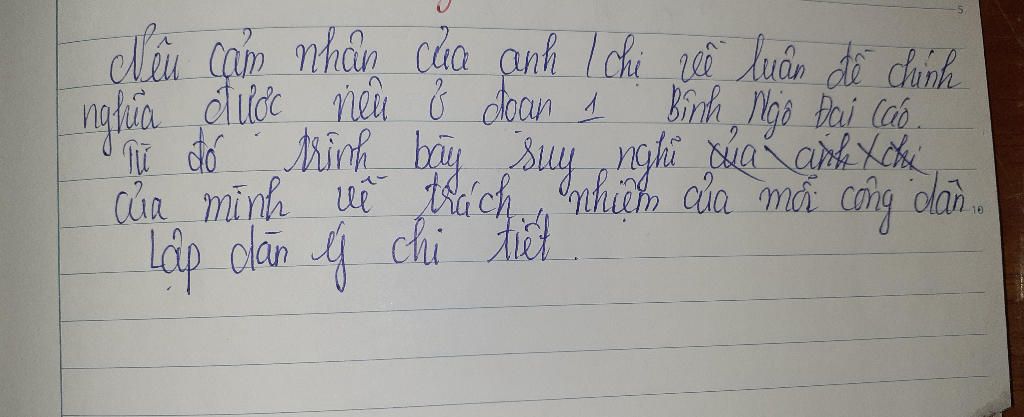 Nêu cảm nhân của anh / chị về luân đề chính
nghĩa được nêu ở đoan 1 Bình Ngô Đại Cáo.
Từ đó trình bày suy nghĩ của anh / chị
của mình về trách nhiệm của mỗi công dân..
Lập dàn ý chi tiết.